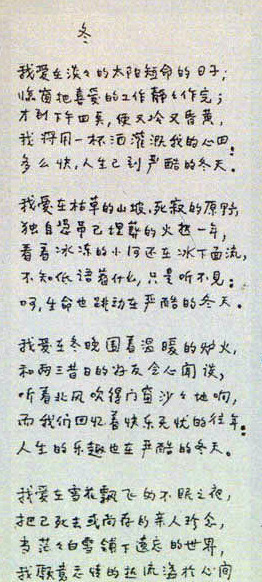 冬
我爱在淡々的太阳短命的日子;
临窗把喜爱的工作静々作完;
才到下午四点,便又冷又昏黄,
我将用一杯酒灌溉我的心田。
多么快,人生已到严酷的冬天。
我爱在枯草的山坡,死寂的原野,
独自凭吊已埋葬的火热一年,
看着冰冻的小河还在冰下面流,
不知低语着什么,只是听不见:
呵,生命也跳动在严酷的冬天。
我爱在冬晚围着温暖的炉火,
和两三昔日的好友会心闲谈,
听着北风吹得门窗沙々地响,
而我们回忆着快乐无忧的往年。
人生的乐趣也在严酷的冬天。
我爱在雪花飘飞的不眠之夜,
把已死去或尚存的亲人珍念,
当茫々白雪铺下遗忘的世界,
我愿意感情的热流溢于心间